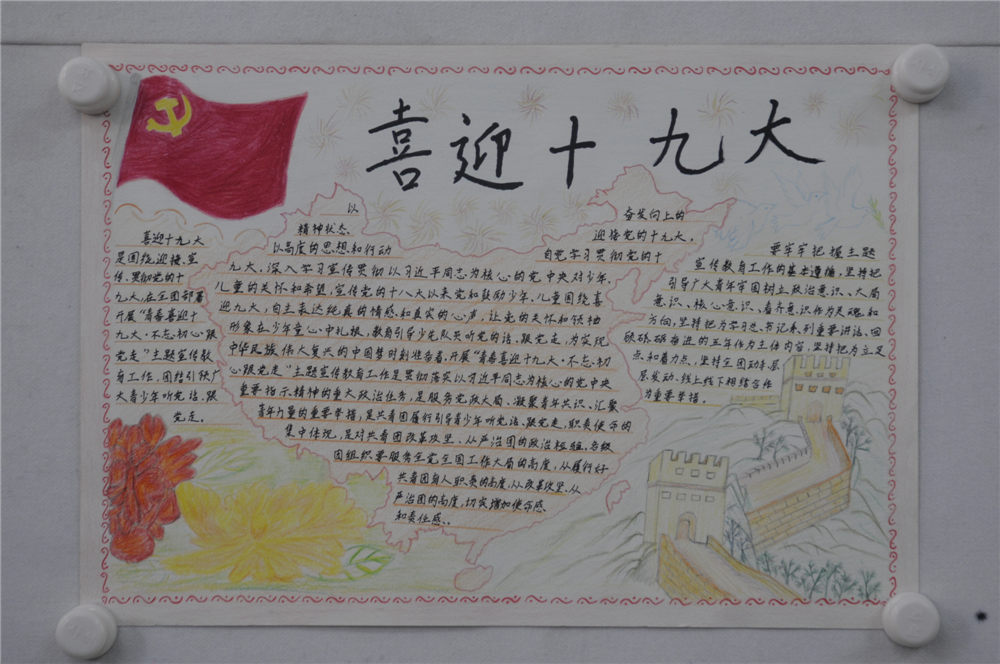 喜迎十九大
喜迎十九大
是围绕迎接、宣
传、贯彻党的十
九大，在全团部署
开展“青春喜迎十
九大·不忘初心跟
党走”主题宣传教
育工作，团结引领广
大青少年听党话、跟
党走。
以
奋发向上的
精神状态、
迎接党的十九大，
以高度的思想和行动
自觉学习贯彻党的十
九大，深入学习宣传贯彻以习近平同志为核心的党中央对少年、
儿童的关怀和希望，宣传党的十八大以来党和鼓励少年、儿童围绕喜
迎九大，自主表达纯真的情感和真实的心声，让党的关怀和领袖
形象在少年童心中扎根，教育引导少先队员听党的话、跟党走，为实现
中华民族伟大复兴的中国梦时刻准备着，开展“青春喜迎十九大·不忘初
心跟党走”主题宣传教育工作是贯彻落实以习近平同志为核心的党中央
重要指示精神的重大政治任务，是服务党政大局、凝聚青年共识、汇聚
青年力量的重要举措，是共青团履行引导青少年听党话、跟党走，职责使命的
集中体现，是对共青团改革攻坚、从严治团的政治检验。各级
团组织要服务全党全国工作大局的高度，从履行好
共青团自人职责的高度，从改革攻坚、从
严治团的高度，切实增加使命感
和责任感。
要牢牢把握主题
宣传教育工作的基本遵循，坚持把
引导广大青年牢固树立政治意识、大局
意识、核心意识、看齐意识作为灵魂和
方向，坚持把为学习总书记系列重要讲话、回
顾砥砺奋进的五年作为主体内容，坚持把为立足
点和着力点，坚持全团动手层
层发动、线上线下相结合作
为重要举措。